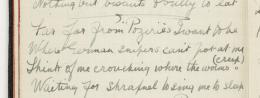 Nothing but biscuits & bully to eat
3.
Far far from Pozieries I want to be
Where German snipers can't pot at me
Think of me crouching where the worms creep
Waiting for shrapnel to sing me to sleep